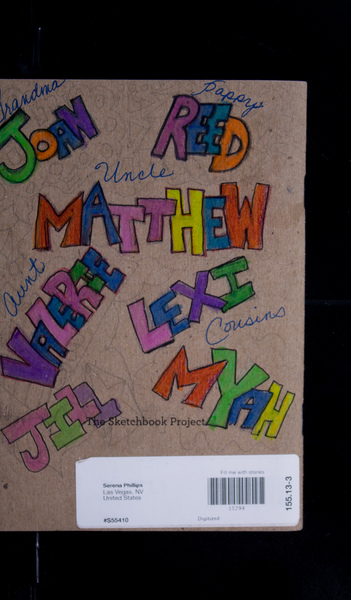 Grandma
Pappy
JOAN
REED
Uncle
MATTHEW
Aunt
VALERIE
LEXI
Cousins
MYAH
JILL
The Sketchbook Project
Fill me with stories
Serena Phillips
Las Vegas, NV
United States
15294
#S55410
Digitized
155.13-3